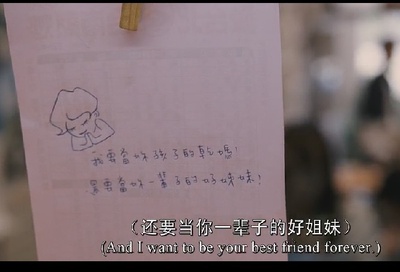 我要當妳孩子的乾媽!
還要當妳一輩子的好姊妹!
(还要当你一辈子的好姐妹)
(And I want to be your best friend forever.)